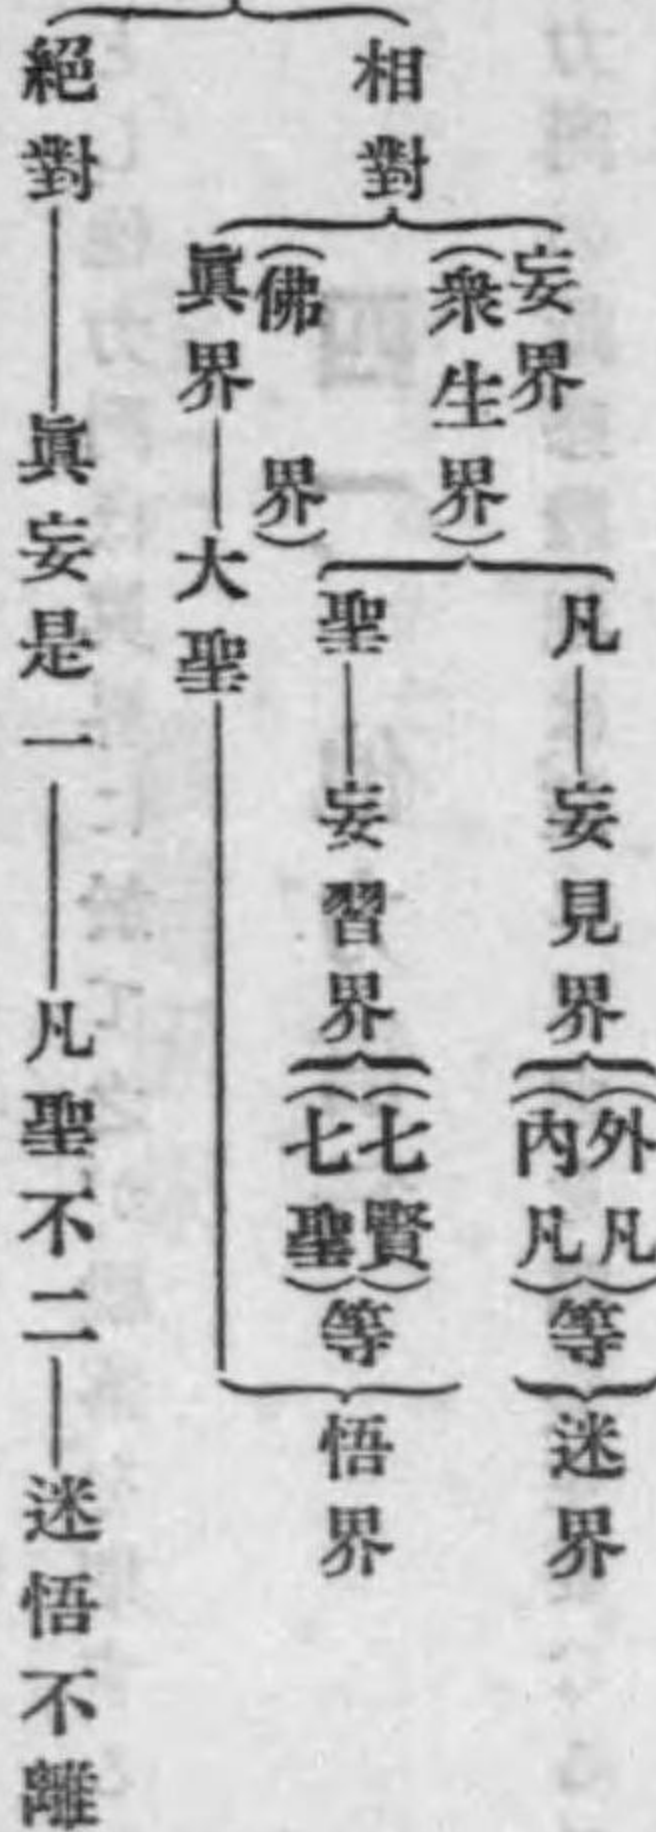 相對
妄界
(衆生界)
凡
妄見界
(外凡)
(內凡)
等
迷界
聖
妄習界
(七賢)
(七聖)
等
悟界
(佛界)
眞界
大聖
絕對
眞妄是一
凡聖不二
迷悟不離